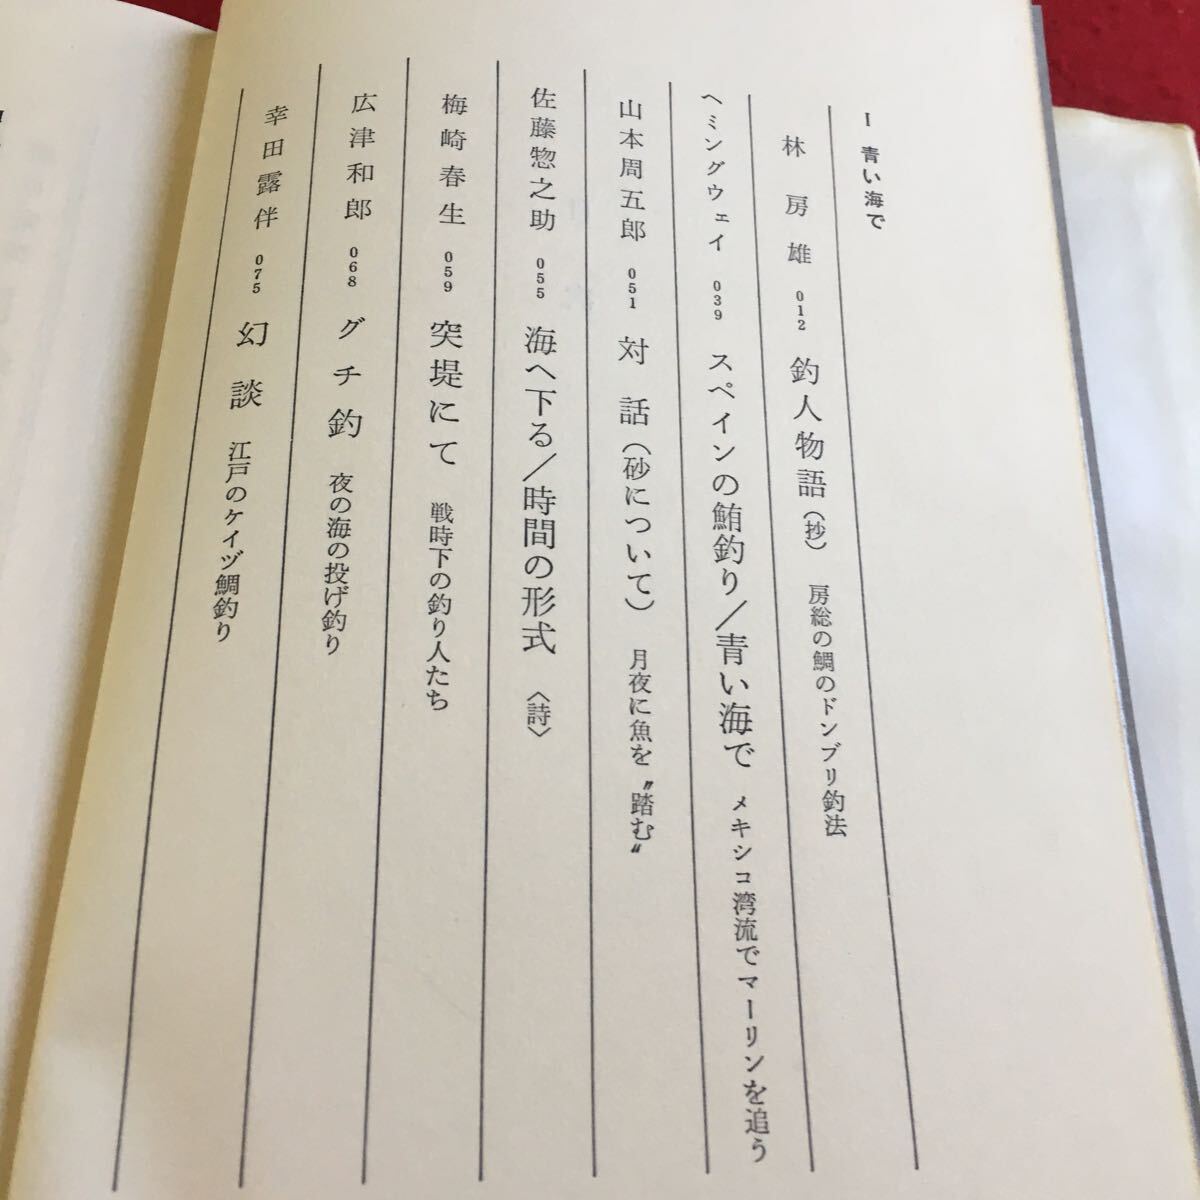 I 青い海で
林房雄 012 釣人物語（抄） 房総の鯛のドンブリ釣法
ヘミングウェイ 039 スペインの鮪釣り／青い海で メキシコ湾流でマーリンを追う
山本周五郎 051 対話（砂について） 月夜に魚を〝踏む〟
佐藤惣之助 055 海へ下る／時間の形式 〈詩〉
梅崎春生 059 突堤にて 戦時下の釣り人たち
広津和郎 068 グチ釣 夜の海の投げ釣り
幸田露伴 075 幻談 江戸のケイヅ鯛釣り